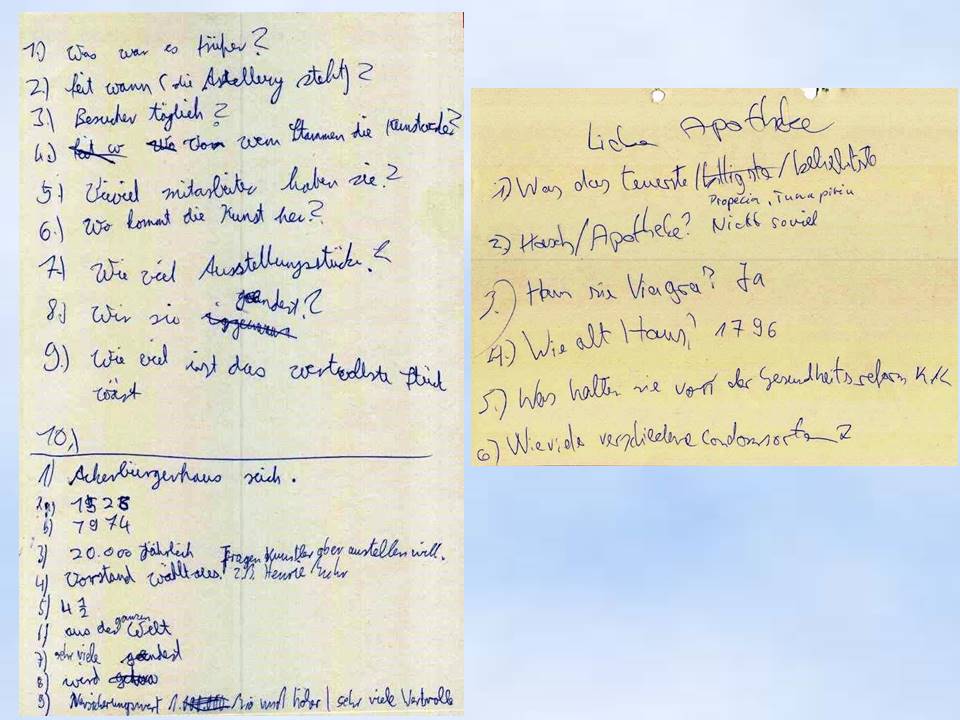 1.) Was war es früher?
2.) seit wann (die Astellung steht)?
3.) Besucher täglich?
4.) von wem Stammen die Kunstwerke?
5.) Vieviel mitarbeiter haben sie?
6.) Wo kommt die Kunst her?
7.) Wie viel Ausstellungsstücke?
8.) Wir sie geändert?
9.) Wie viel ist das wertvollste Stück
10.)
1) Ackerbürgerhaus reich.
a) 1528
b) 1974
3) 20.000 Jährlich Fragen Künstler ober austellen will.
4) Vorstand wählt aus.
5) 4 1/2
6) aus der ganzen Welt
7) sehr viele
8) wird geändert
9) Versicherungswert 1. Mio und höher / sehr viele Wertvolle
Licher Apotheke
1) Was das teuerste/billigster/beliebtste
Propecia,
2.) Hasch/Apotheke? Nicht soviel
3.) Ham sie Viagra? Ja
4.) Wie alt Haus? 1796
5.) Was halten sie von der Gesundheitsreform K.K
6) Wieviele verschiedene condomsorten?